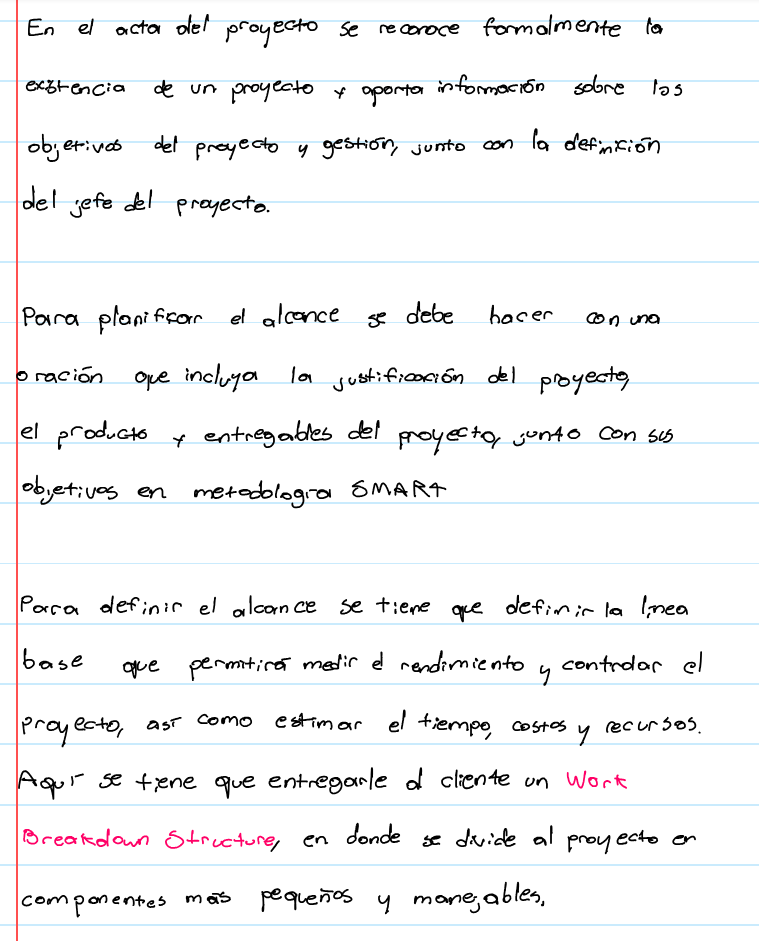 En el acta del proyecto se reconoce formalmente la
existencia de un proyecto y aporta información sobre los
objetivos del proyecto y gestión, junto con la definición
del jefe del proyecto.
Para planificar el alcance se debe hacer con una
oración que incluya la justificación del proyecto,
el producto y entregables del proyecto, junto con sus
objetivos en metodología SMART
Para definir el alcance se tiene que definir la línea
base que permitirá medir el rendimiento y controlar el
proyecto, así como estimar el tiempo, costos y recursos.
Aquí se tiene que entregarle al cliente un Work
Breakdown Structure, en donde se divide al proyecto en
componentes más pequeños y manejables.